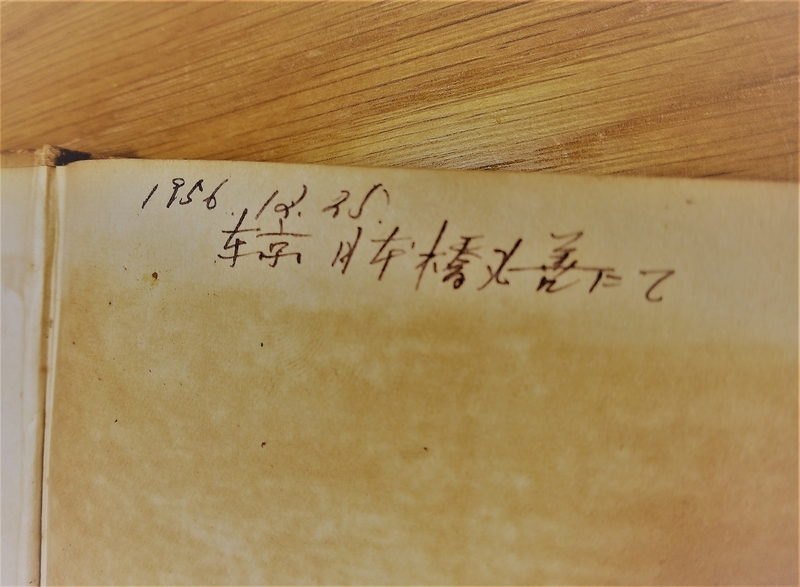 1956.12.25.
東京 日本橋丸善にて